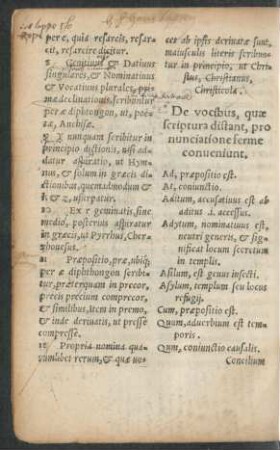 per æ, quia resarcis, resar-
cit, resarcire dicitur.
8 Genitiuus & Datiuus
singulares, & Nominatiuus
& Vocatiuus plurales, pri-
mæ declinationis, scribuntur
per æ diphthongon, ut, poë-
tæ, Anchisæ.
9 nunquam scribitur in
principio dictionis, nisi ad-
datur aspiratio, ut Hym-
nus, & solum in græcis di-
ctionibus, quemadmodum &
& z, usurpatur.
10 Ex r geminatis, sine
medio, posterius aspiratur
in græcis, ut Pyrrhus, Cher-
rhonesus.
11 Præpositio, præ, ubique
per æ diphthongon scribi-
tur, præterquam in precor,
precis precium comprecor,
& similibus, Item in premo,
& inde deriuatis, ut presse
compresse.
12 Propria nomina qua-
rumlibet rerum, & quæ uo-
ces ab ipsis deriuatæ sunt,
maiusculis literis scribun-
tur in principio, ut Chri-
stus, Christianus,
Christicola.
De vocibus, quæ
scriptura distant, pro
nunciatione ferme
conueniunt.
Ad, præpositio est.
At, coniunctio.
Aditum, accusatiuus est ab
aditus .i. accessus.
Adytum, nominatiuus est,
neutri generis, & sig-
nificat locum secretum
in templis.
Asilum, est genus insecti.
Asylum, templum seu locus
refugij.
Cum, præpositio est.
Quum, aduerbium est tem-
poris.
Quum, coniunctio causalis.
Concilium